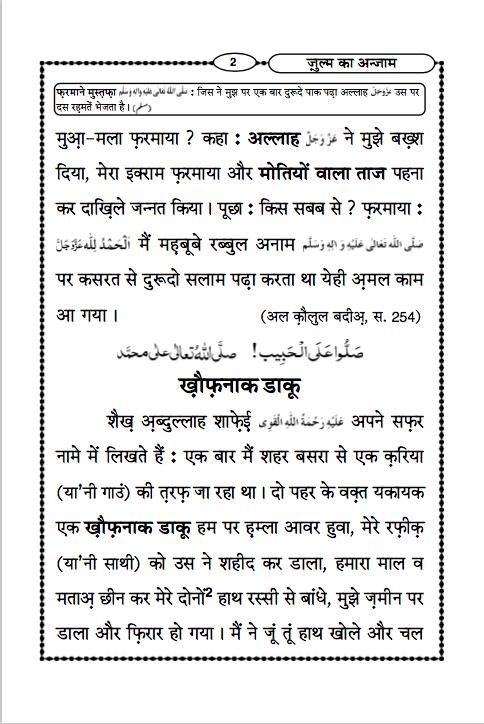 2
ज़ुल्म का अन्जाम
फ़रमाने मुस्तफ़ा صَلَّى اللهُ تَعَالٰى عَلَيْهِ وَاٰلِهٖ وَسَلَّم : जिस ने मुझ पर एक बार दुरूदे पाक पढ़ा अल्लाह عَزَّوَجَلَّ उस पर
दस रहमतें भेजता है। (مسلم)
मुआ़-मला फ़रमाया ? कहा : अल्लाह عَزَّوَجَلَّ ने मुझे बख़्श
दिया, मेरा इक्राम फ़रमाया और मोतियों वाला ताज पहना
कर दाख़िले जन्नत किया। पूछा : किस सबब से ? फ़रमाया :
اَلْحَمْدُ لِلّٰه عَزَّوَجَلَّ मैं महबूबे रब्बुल अनाम صَلَّى اللهُ تَعَالٰى عَلَيْهِ وَاٰلِهٖ وَسَلَّم
पर कसरत से दुरूदो सलाम पढ़ा करता था येही अ़मल काम
आ गया। (अल क़ौलुल बदीअ़, स. 254)
صَلُّوا عَلَى الْحَبِيب! صلَّى اللهُ تعالٰى على محمَّد
ख़ौफ़नाक डाकू
शैख़ अ़ब्दुल्लाह शाफ़ेई عَلَيْهِ رَحْمَةُ اللهِ الْقَوِى अपने सफ़र
नामे में लिखते हैं : एक बार मैं शहर बसरा से एक क़रिया
(या'नी गाउं) की त़रफ़ जा रहा था। दो पहर के वक़्त यकायक
एक ख़ौफ़नाक डाकू हम पर ह़म्ला आवर हुवा, मेरे रफ़ीक़
(या'नी साथी) को उस ने शहीद कर डाला, हमारा माल व
मताअ़ छीन कर मेरे दोनों² हाथ रस्सी से बांधे, मुझे ज़मीन पर
डाला और फ़िरार हो गया। मैं ने जूं तूं हाथ खोले और चल